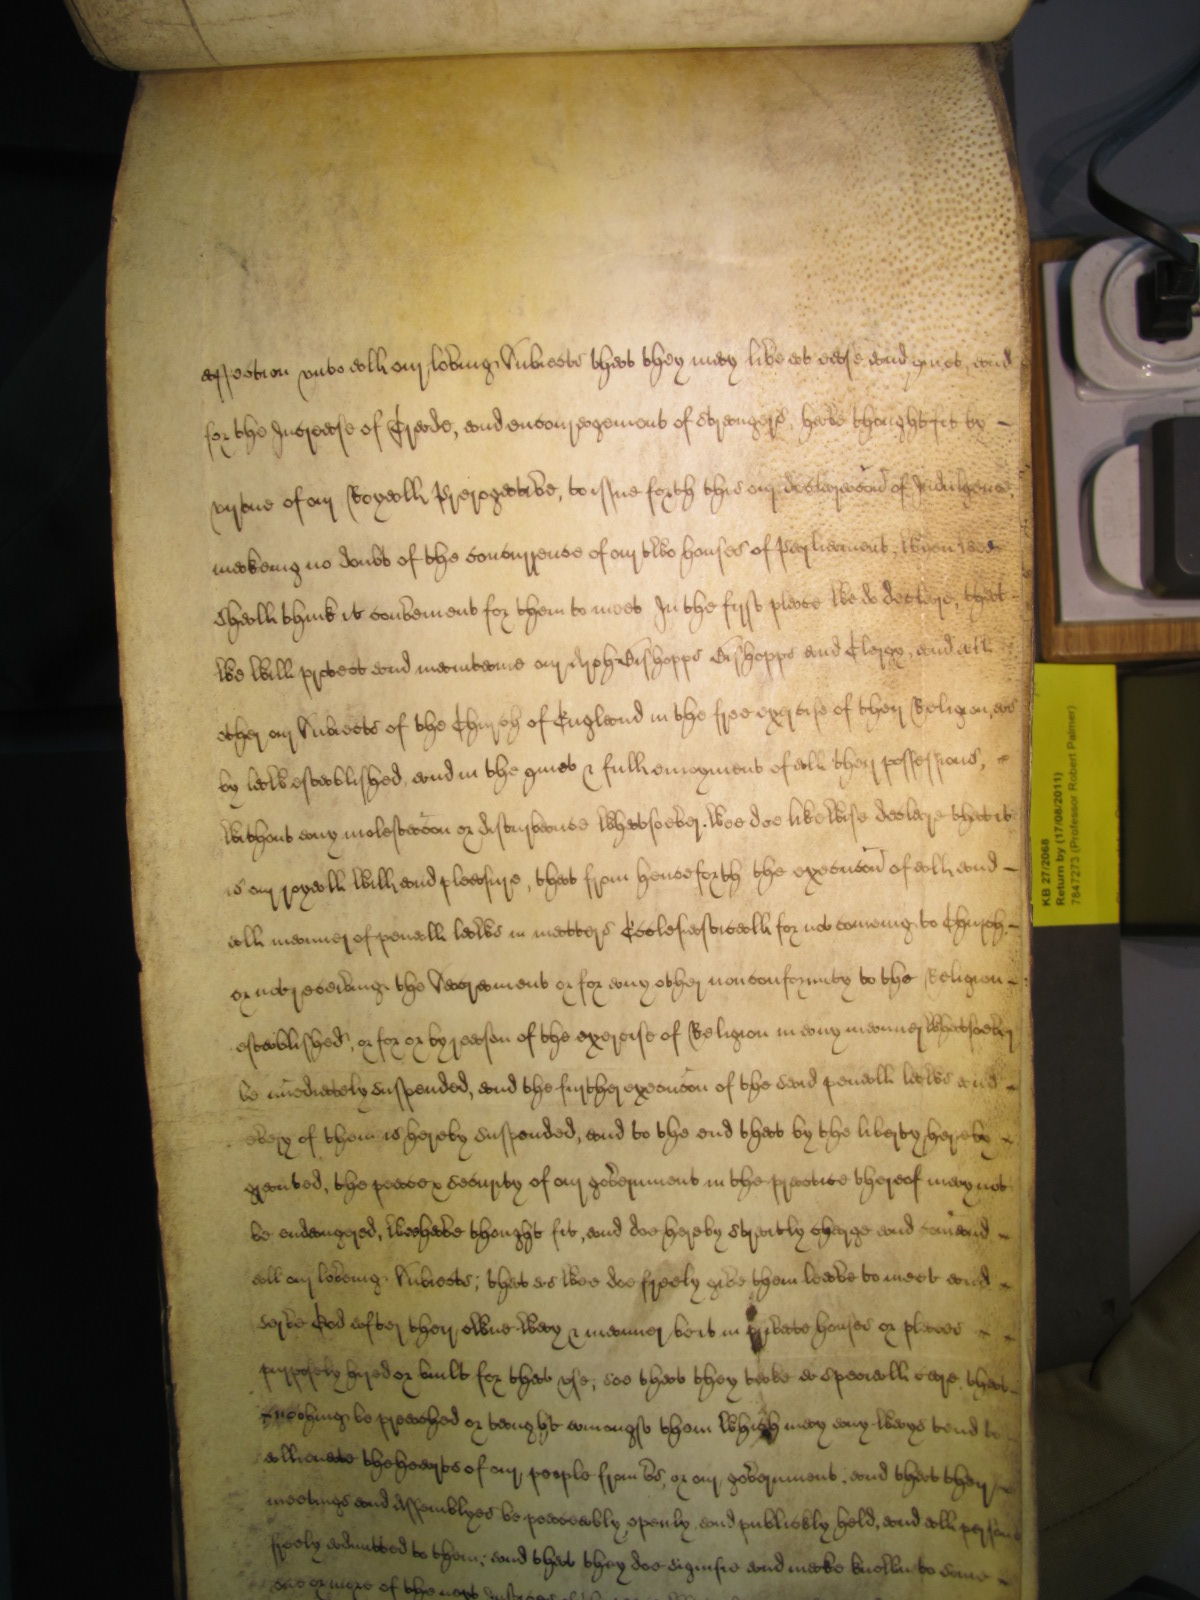 affection unto all our loveing Subiects that they may live at ease and quiet, and
for the Increase of Trade, and encouragement of strangers, have thought fit by
virtue of our Royall Prerogative, to issue forth this our declaracon of Indulgence,
makeing no doubt of the concurrence of our two houses of Parliament, when wee
shall think it convenient for them to meet In the first place we do declare, that
we will protect and maintaine our ArchBishopps Bishopps and Clergy, and all
other our Subiects of the Church of England in the free exercise of their Religion, as
by law established, and in the quiet & full enioyment of all their possessions,
without any molestacon or disturbance whatsoever. Wee doe likewise declare that it
is our royall will and pleasure, that from henceforth the execucon of all and
all manner of penall lawes in matters Ecclesiasticall for not comeing to Church
or not receiving the Sacrament or for any other nonconformity to the Religion
established, or for or by reason of the exercise of Religion in any manner whatsoever
be imediately suspended, and the further execucon of the said penall lawes and
every of them is hereby suspended, and to the end that by the liberty hereby
granted, the peace & security of our government in the practice thereof may not
be endangered, wee have thought fit, and doe hereby straitly charge and comand
all our loveing Subiects; that as wee doe freely give them leave to meet and
serve God after their owne way & manner be it in private houses or places
purposely hired or built for that use, soe that they take a speciall care, that
nothing be preached or taught amongst them which may any ways tend to
allienate the hearts of our people from us, or our government, and that their
meetings and Assemblyes be peaceably openly and publickly held, and all persons
freely admitted to them; and that they doe signifie and make knowne to some
one or more of the next Justices of the
KB 27/2068
Return by (17/08/2011)
7847273 (Professor Robert Palmer)